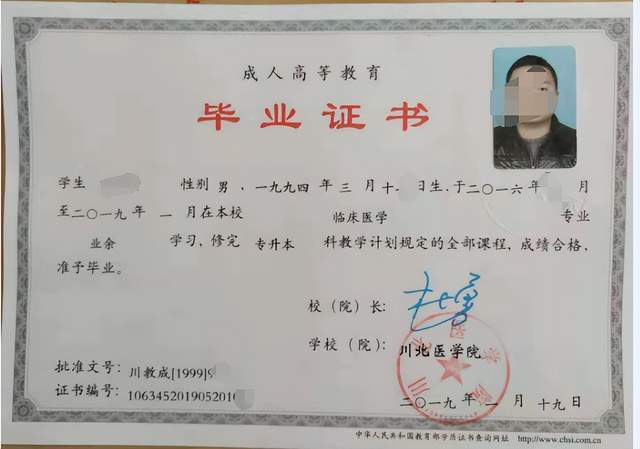 成人高等教育
毕业证书
学生 性别 男 , 一九九四 年 三 月 十 日生, 于 二〇一六 年 月
至 二〇一九 年 一 月在本校 临床医学 专业
业余 学习, 修完 专升本 科教学计划规定的全部课程, 成绩合格,
准予毕业。
校（院）长:
学校（院）: 川北医学院
批准文号: 川教成[1999]
证书编号: 1063452019052010
二〇一九 年 一 月 十九日
中华人民共和国教育部学历证书查询网址 http://www.chsi.com.cn